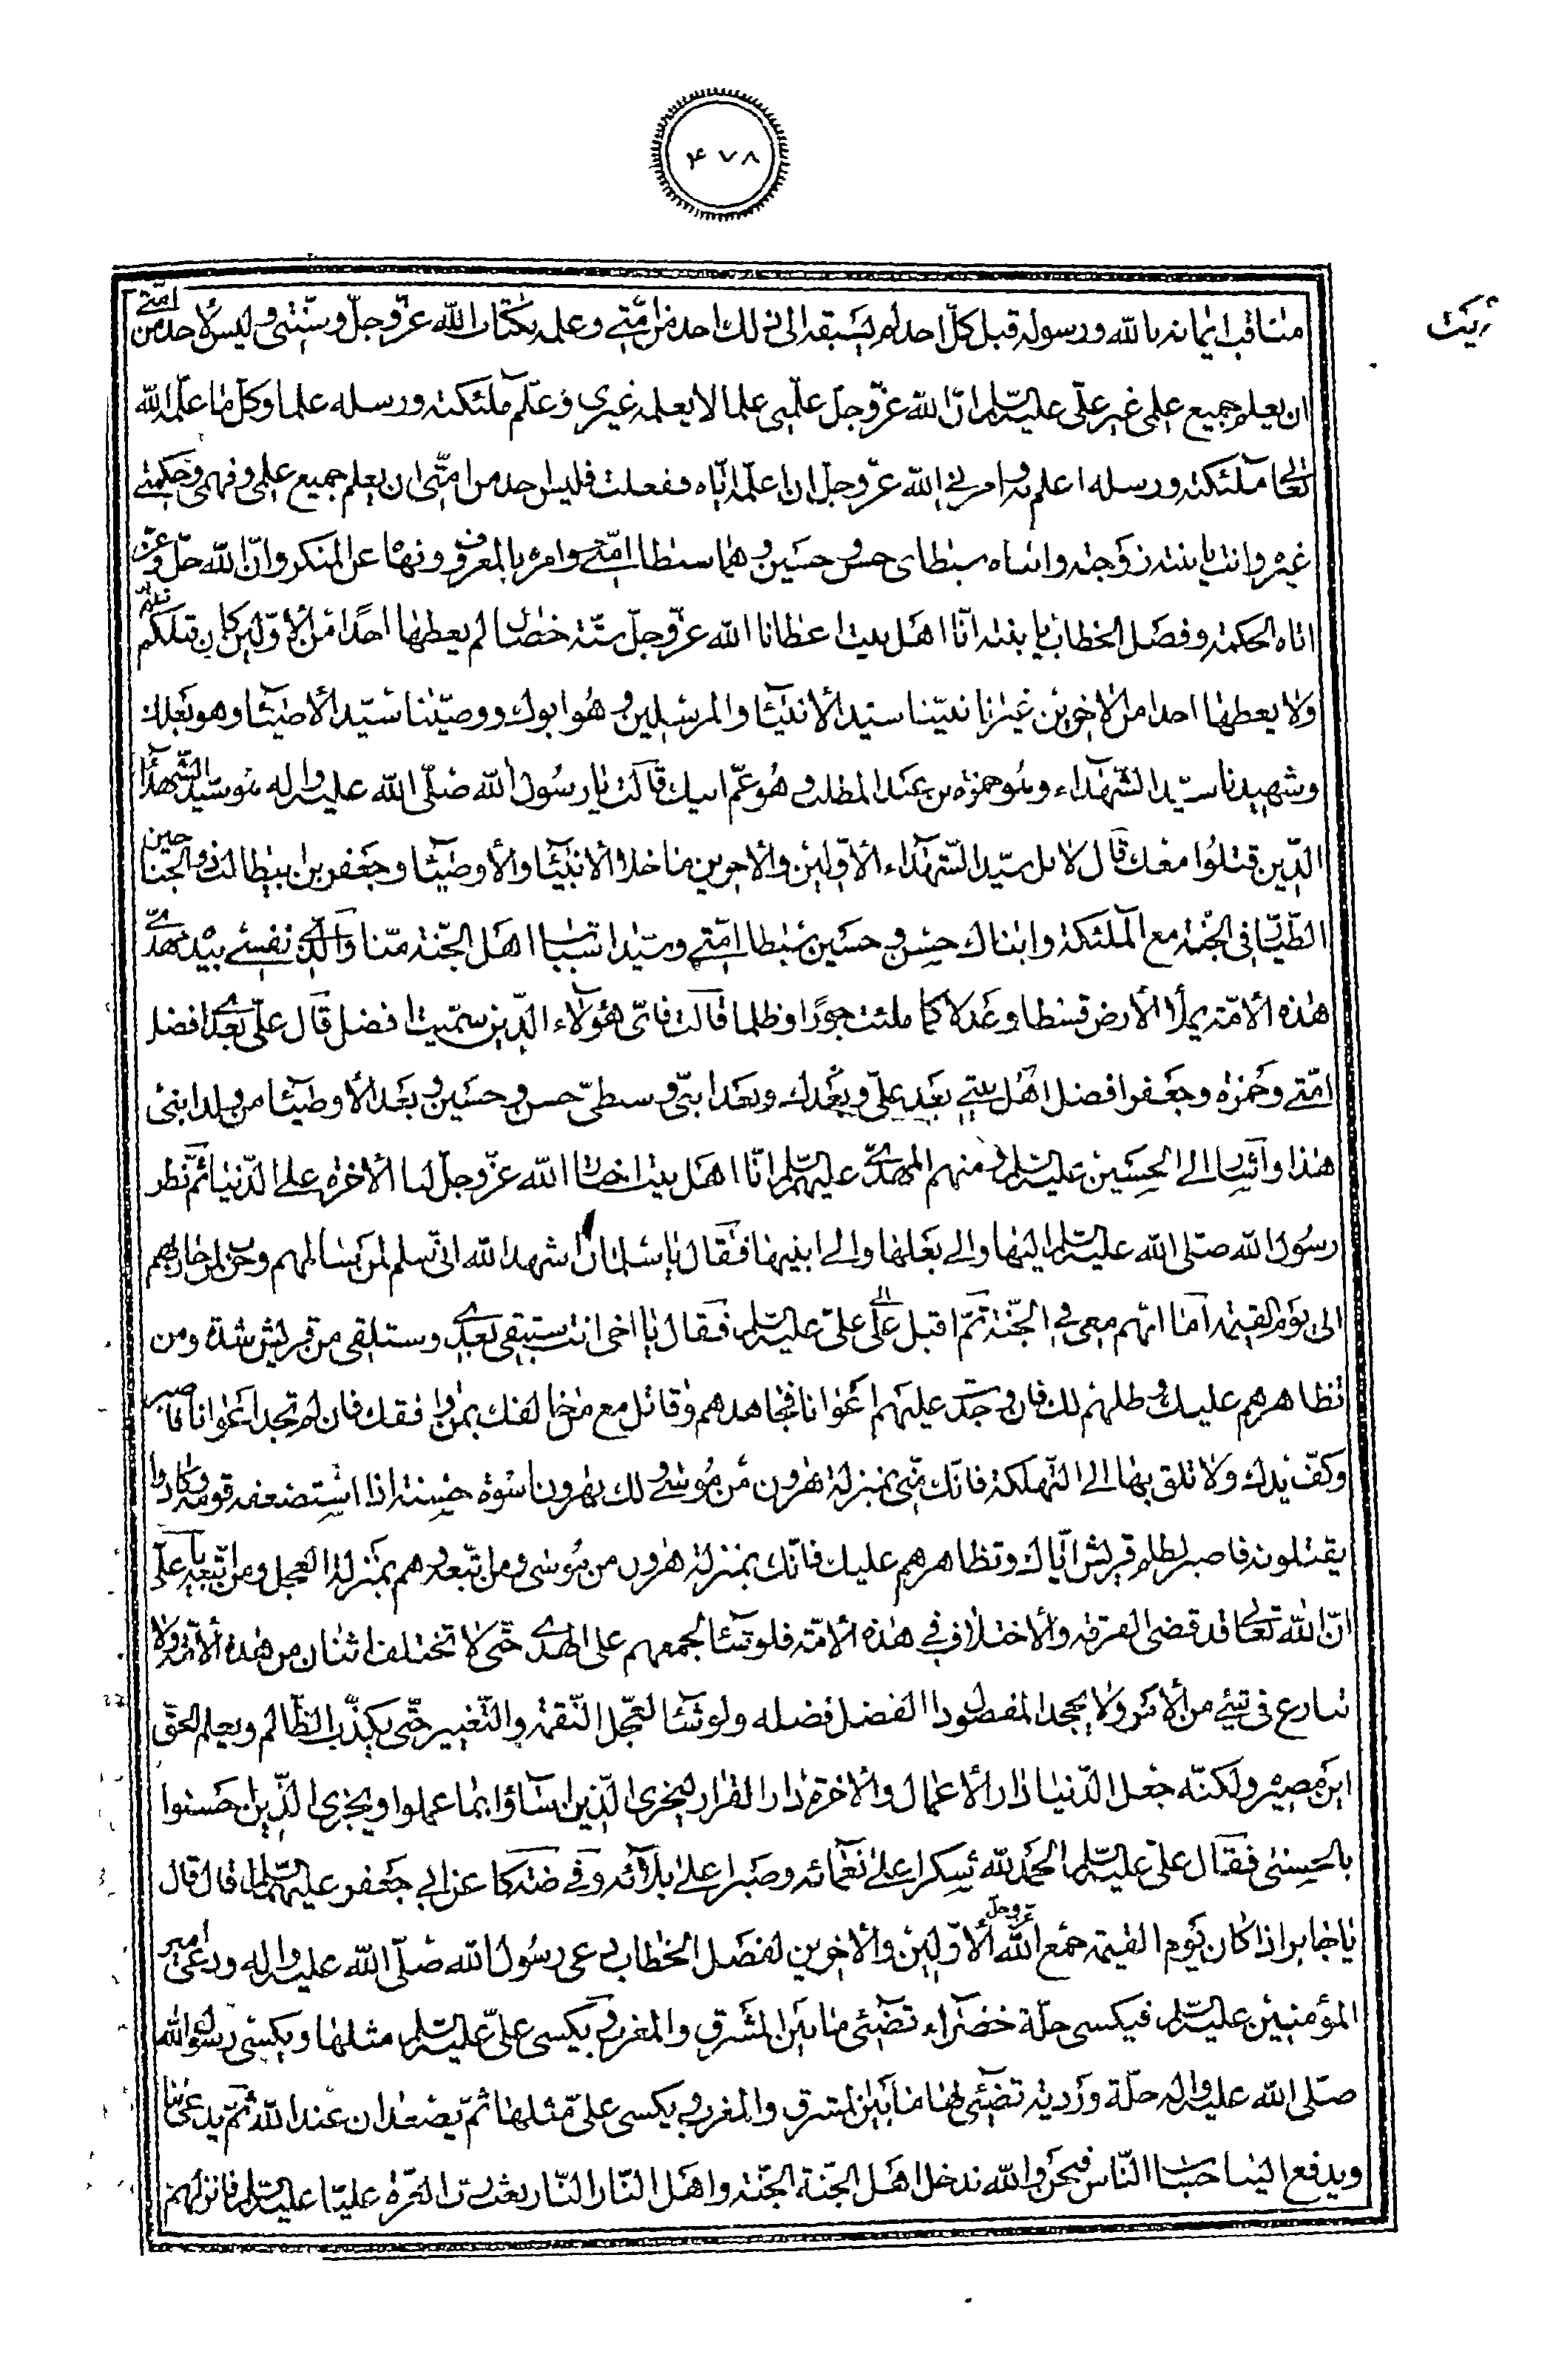 ۴۷۸
مناقب ايمانه بالله ورسوله قبل كلّ احد لم يسبقه الى ذلك احد من امّتي وعلمه بكتاب الله عزّ وجلّ وسنّتي وليس لأحد من امّتي
ان يعلم جميع علمي غير علي عليه السلم انّ الله عزّ وجلّ علّمني علما لا يعلمه غيري وعلّم ملئكته ورسله علما وكلّ ما علّمه الله
تعالى ملئكته ورسله اعلم به وامرني الله عزّ وجلّ ان اعلّمه ايّاه ففعلت فليس احد من امّتي ان يعلم جميع علمي وفهمي وحكمتي
غيره وانت يا بنته زوجته وابناه سبطاى حسن وحسين وهما سبطا امّتي وامره بالمعروف ونهاه عن المنكر وانّ الله جلّ وعزّ
اتاه الحكمة وفصل الخطاب يا بنته انّا اهل بيت اعطانا الله عزّ وجلّ ستّة خصال لم يعطها احدًا من الأوّلين كان قبلكم
ولا يعطها احدا من الاخرين غيرنا نبيّنا سيّد الأنبياء والمرسلين وهو ابوك ووصيّنا سيّد الأوصياء وهو بعلك
وشهيدنا سيّد الشّهداء وهو حمزة بن عبد المطلب وهو عمّ ابيك قالت يا رسول الله صلّى الله عليه واله هو سيّد الشّهداء
الّذين قتلوا معك قال لا بل سيّد الشّهداء الأوّلين والأخرين ما خلا الأنبياء والأوصياء وجعفر بن ابيطالب ذو الجناحين
الطّيّار في الجنّة مع الملئكة وابناك حسن وحسين سبطا امّتي وسيّدا شباب اهل الجنّة منّا والّذي نفسي بيده مهدي
هذه الأمّة يملأ الأرض قسطا وعدلا كما ملئت جورًا وظلما قالت فاىّ هؤلاء الّذين سمّيت افضل قال علي بعدي افضل
امّتي وحمزة وجعفر افضل اهل بيتي بعد عليّ وبعدك وبعد ابنيّ وسبطيّ حسن وحسين وبعد الأوصياء من ولد ابنى
هذا واشار الى الحسين عليه السلم ومنهم المهدي عليهم السلم انّا اهل بيت اختار الله عزّ وجلّ لنا الأخرة على الدّنيا ثمّ نظر
رسول الله صلّى الله عليه السلم اليها والى بعلها والى ابنيها فقال يا سلمان اشهد الله انّي سلم لمن سالمهم وحرب لمن حاربهم
الى يوم القيمة اما انّهم معي في الجنّة ثمّ اقبل على علىّ عليه السلم فقال يا اخي انت ستبقى بعدي وستلقى من قريش شدة ومن
تظاهرهم عليك وظلمهم لك فان وجدت عليهم اعوانا فجاهدهم وقاتل مع من خالفك بمن وافقك فان لم تجد اعوانا فاصبر
وكفّ يدك ولا تلق بها الى التّهلكة فانّك منّي بمنزلة هرون من موسى ولك بهرون اسوة حسنة اذا استضعفه قومه وكادوا
يقتلونه فاصبر لظلم قريش ايّاك وتظاهرهم عليك فانّك بمنزلة هرون من موسى ومن اتّبعه وهم بمنزلة العجل ومن اتّبعه يا علي
انّ الله تعالى قد قضى الفرقة والأختلاف في هذه الأمّة فلو شاء لجمعهم على الهدى حتّى لا تختلف اثنان من هذه الأمّة ولا
تنازع في شيء من الأمر ولا يجحد المفضول ذا الفضل فضله ولو شاء لعجّل النّقمة والتّغيير حتّى يكذّب الظّالم ويعلم الحقّ
اين مصيره ولكنّه جعل الدّنيا دار الأعمال والأخرة دار القرار ليجزي الّذين اساؤا بما عملوا ويجزي الّذين احسنوا
بالحسنى فقال علي عليه السلم الحمد لله شكرا على نعمائه وصبرا على بلائه وفي ضه كا عن ابي جعفر عليهما السلم قال قال
يا جابر اذا كان يوم القيمة جمع الله عزّ وجلّ الأوّلين والأخرين لفصل الخطاب دعى رسول الله صلّى الله عليه واله ودعى امير
المؤمنين عليه السلم فيكسى حلّة خضراء تضيئ ما بين المشرق والمغرب ويكسى علي عليه السلم مثلها ويكسى رسول الله
صلّى الله عليه واله حلّة ورديه تضيئ لها ما بين المشرق والمغرب ويكسى علي مثلها ثمّ يصعدان عندالله ثمّ يدعى بنا
ويدفع الينا حساب النّاس فنحن والله ندخل اهل الجنّة الجنّة واهل النّار النّار بعث ربّ العزة عليّا عليه السلم فانزلهم